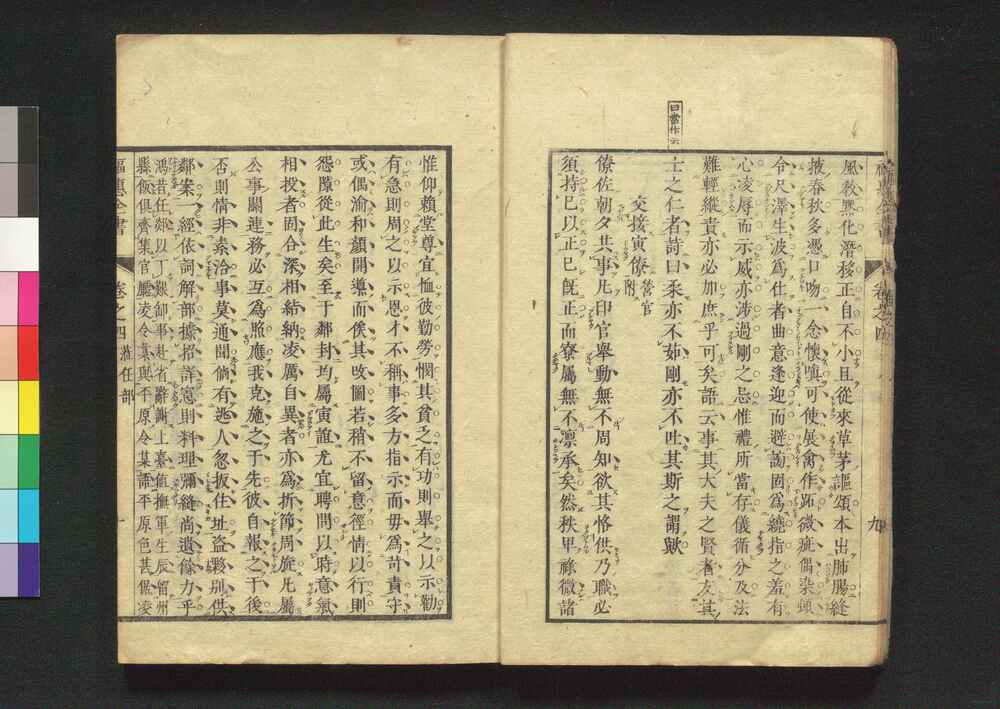 曰當作云
風教黙化潛移正自不小且從來草茅謳頌本出肺腸縫
掖春秋多憑口吻一念懷嗔可使展禽作跖微疵偶染頭
令尺澤生波爲仕者曲意逢迎而避謗固爲繞指之羞有
心凌辱而示威亦涉過剛之忌惟禮所當存儀循分及法
難輕縱責亦必加庶乎可矣語云事其大夫之賢者友其
士之仁者詩曰柔亦不茹剛亦不吐其斯之謂歟
交接寅僚 附營官
僚佐朝夕共事凡印官舉動無不周知欲其恪供乃職必
須持己以正己既正而寮屬無不凛承矣然秩卑祿微諸
福惠全書 卷之四 九
惟仰賴堂尊宜恤彼勤勞憫其貧乏有功則舉之以示勸
有急則周之以示恩才不稱事多方指示而毋爲苛責守
或偶渝和顔開導而俟其改圖若稍不留意徑情以行則
怨隙從此生矣至于鄰封均屬寅誼尤宜聘問以時意氣
相投者固合深相結納凌厲自異者亦爲折節周旋凡屬
公事關連務必互爲照應我克施之于先彼自報之于後
否則情非素洽事莫通聞倘有逃人忽扳住址盜夥别供
鄰案一經依詞解部據招詳憲則料理彌縫尚遺餘力乎
鴻昔任郯以丁艱卸事赴省辭謝上臺値撫軍生辰留州
縣飯俱齊集官廳凌令某與平原令某譁平原色甚倨凌
福惠全書 卷之四 涖任部